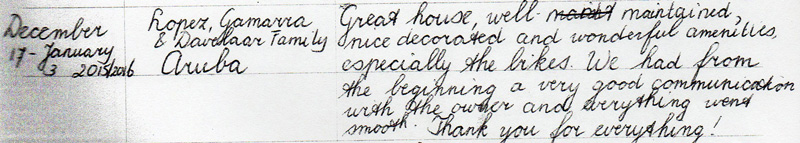 December
17 - January
3 2015/2016
Lopez, Gamarra
& Davelaar Family
Aruba
Great house, well maintained,
nice decorated and wonderful amenities,
especially the bikes. We had from
the beginning a very good communication
with the owner and everything went
smooth. Thank you for everything!